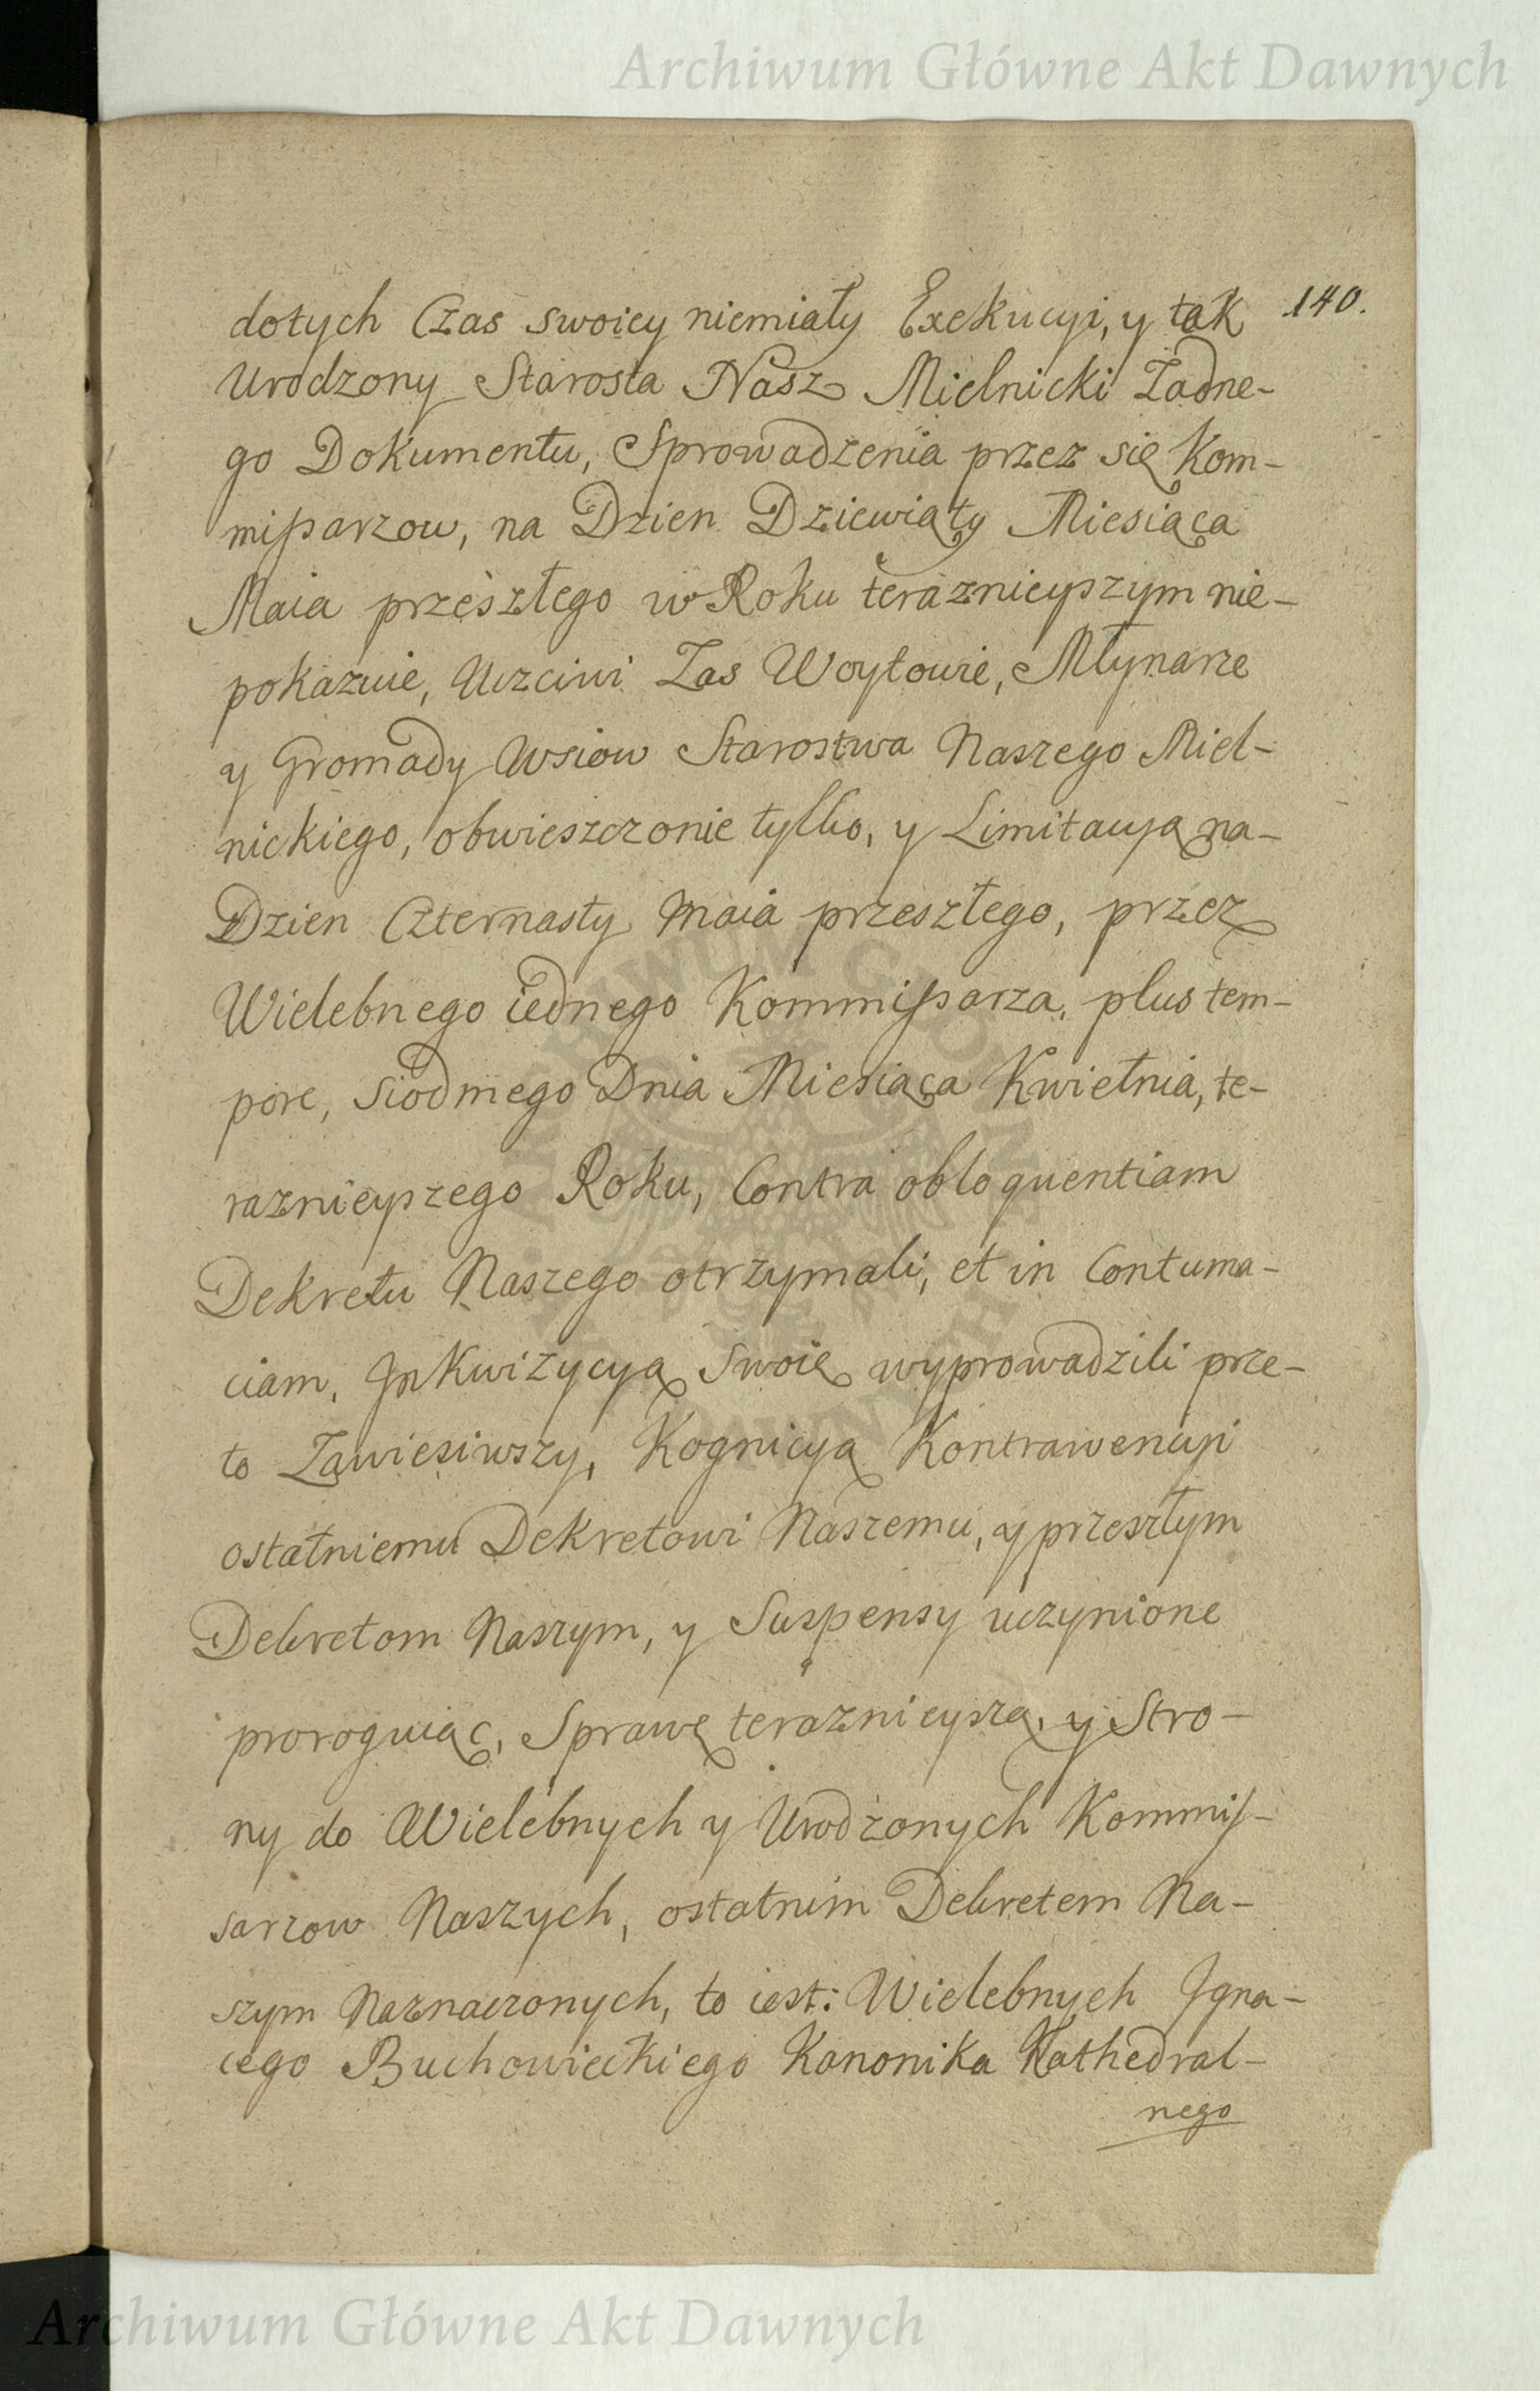 Archiwum Główne Akt Dawnych
140.
dotych Czas swoiey niemiały Exekucyi, y tak
Urodzony Starosta Nasz Mielnicki Zadne-
go Dokumentu, Sprowadzenia przez się Kom-
mißarzow, na Dzien Dziewiąty Miesiąca
Maia przeszłego w Roku teraznieyszym nie-
pokazuie, Uczciwi Zas Woytowie, Młynarze
y Gromady Wsiow Starostwa Naszego Miel-
nickiego, obwieszczonie tylko, y Limitacyą na-
Dzien Czternasty Maia przeszłego, przez
Wielebnego iednego Kommißarza, plus tem-
pore, Siodmego Dnia Miesiąca Kwietnia, te-
raznieyszego Roku, Contra obloquentiam
Dekretu Naszego otrzymali, et in Contuma-
ciam, Inkwizycyą Swoię wyprowadzili prze-
to Zawiesiwszy, Kognicyą Kontrawencyi
ostatniemu Dekretowi Naszemu, y przeszłym
Dekretom Naszym, y Suspensy uczynione
proroguiąc, Sprawę teraznieyszą, y Stro-
ny do Wielebnych y Urodzonych Kommis-
sarzow Naszych, ostatnim Dekretem Na-
szym Naznaczonych, to iest: Wielebnych Igna-
cego Buchowieckiego Kanonika Kathedral-
nego
Archiwum Główne Akt Dawnych